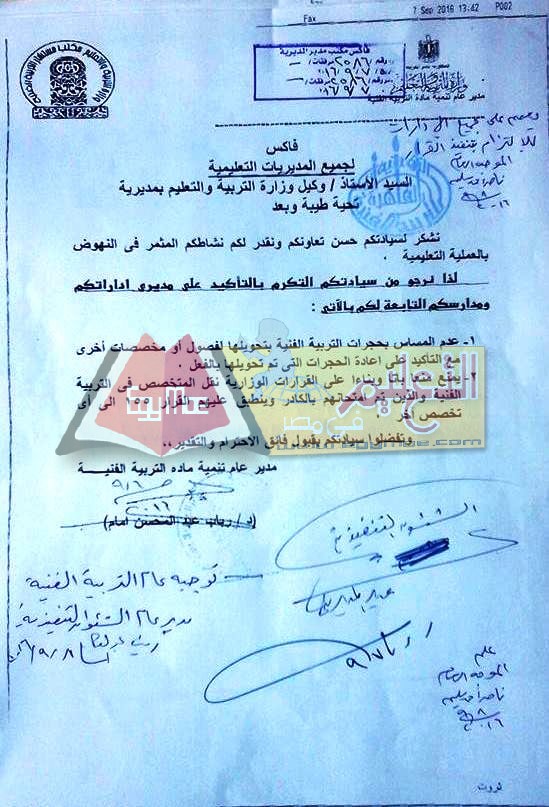 Fax
7 Sep 2016 13:42 P002
فاكس مكتب مدير المديرية
مدير عام تنمية مادة التربية الفنية
فاكس
لجميع المديريات التعليمية
السيد الأستاذ / وكيل وزارة التربية والتعليم بمديرية
تحية طيبة وبعد
نشكر لسيادتكم حسن تعاونكم ونقدر لكم نشاطكم المثمر فى النهوض
بالعملية التعليمية .
لذا نرجو من سيادتكم التكرم بالتأكيد على مديرى اداراتكم
ومدارسكم التابعة لكم بالآتي :
١- عدم المساس بحجرات التربية الفنية بتحويلها لفصول أو مخصصات أخرى
مع التأكيد على اعادة الحجرات التى تم تحويلها بالفعل .
٢- يمنع منعا باتا وبناءا على القرارات الوزارية نقل المتخصص فى التربية
الفنية والذين تم امتحانهم بالكادر وينطبق عليهم القرار ١٥٥ الى أى
تخصص آخر
وتفضلوا سيادتكم بقبول فائق الاحترام والتقدير ,,
مدير عام تنمية ماده التربية الفنية
(د/ رباب عبد المحسن امام)
التعليم
فى مصر
الشئون التنفيذية
توجيه عام التربية الفنية
مدير عام الشئون التنفيذية
علم
الموجه العام
ثروت